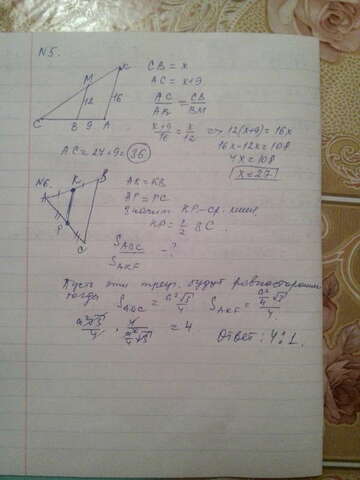 N5.
К
М
12
16
С
В
9
А
CB = x
AC = x+9
AC/AK = CB/BM
x+9/16 = x/12 => 12(x+9) = 16x
16x-12x = 108
4x = 108
x = 27.
AC = 27+9 = 36
N6.
А
К
В
Р
С
AK = KB
AP = PC
Значит KP - ср. линия
KP = 1/2 BC.
S ABC / S AKP - ?
Пусть эти треуг. будут равносторонними
тогда S ABC = a²√3/4 S AKP = a²/4 √3/4
a²√3/4 · 4/a²/4 √3 = 4
Ответ: 4:1.